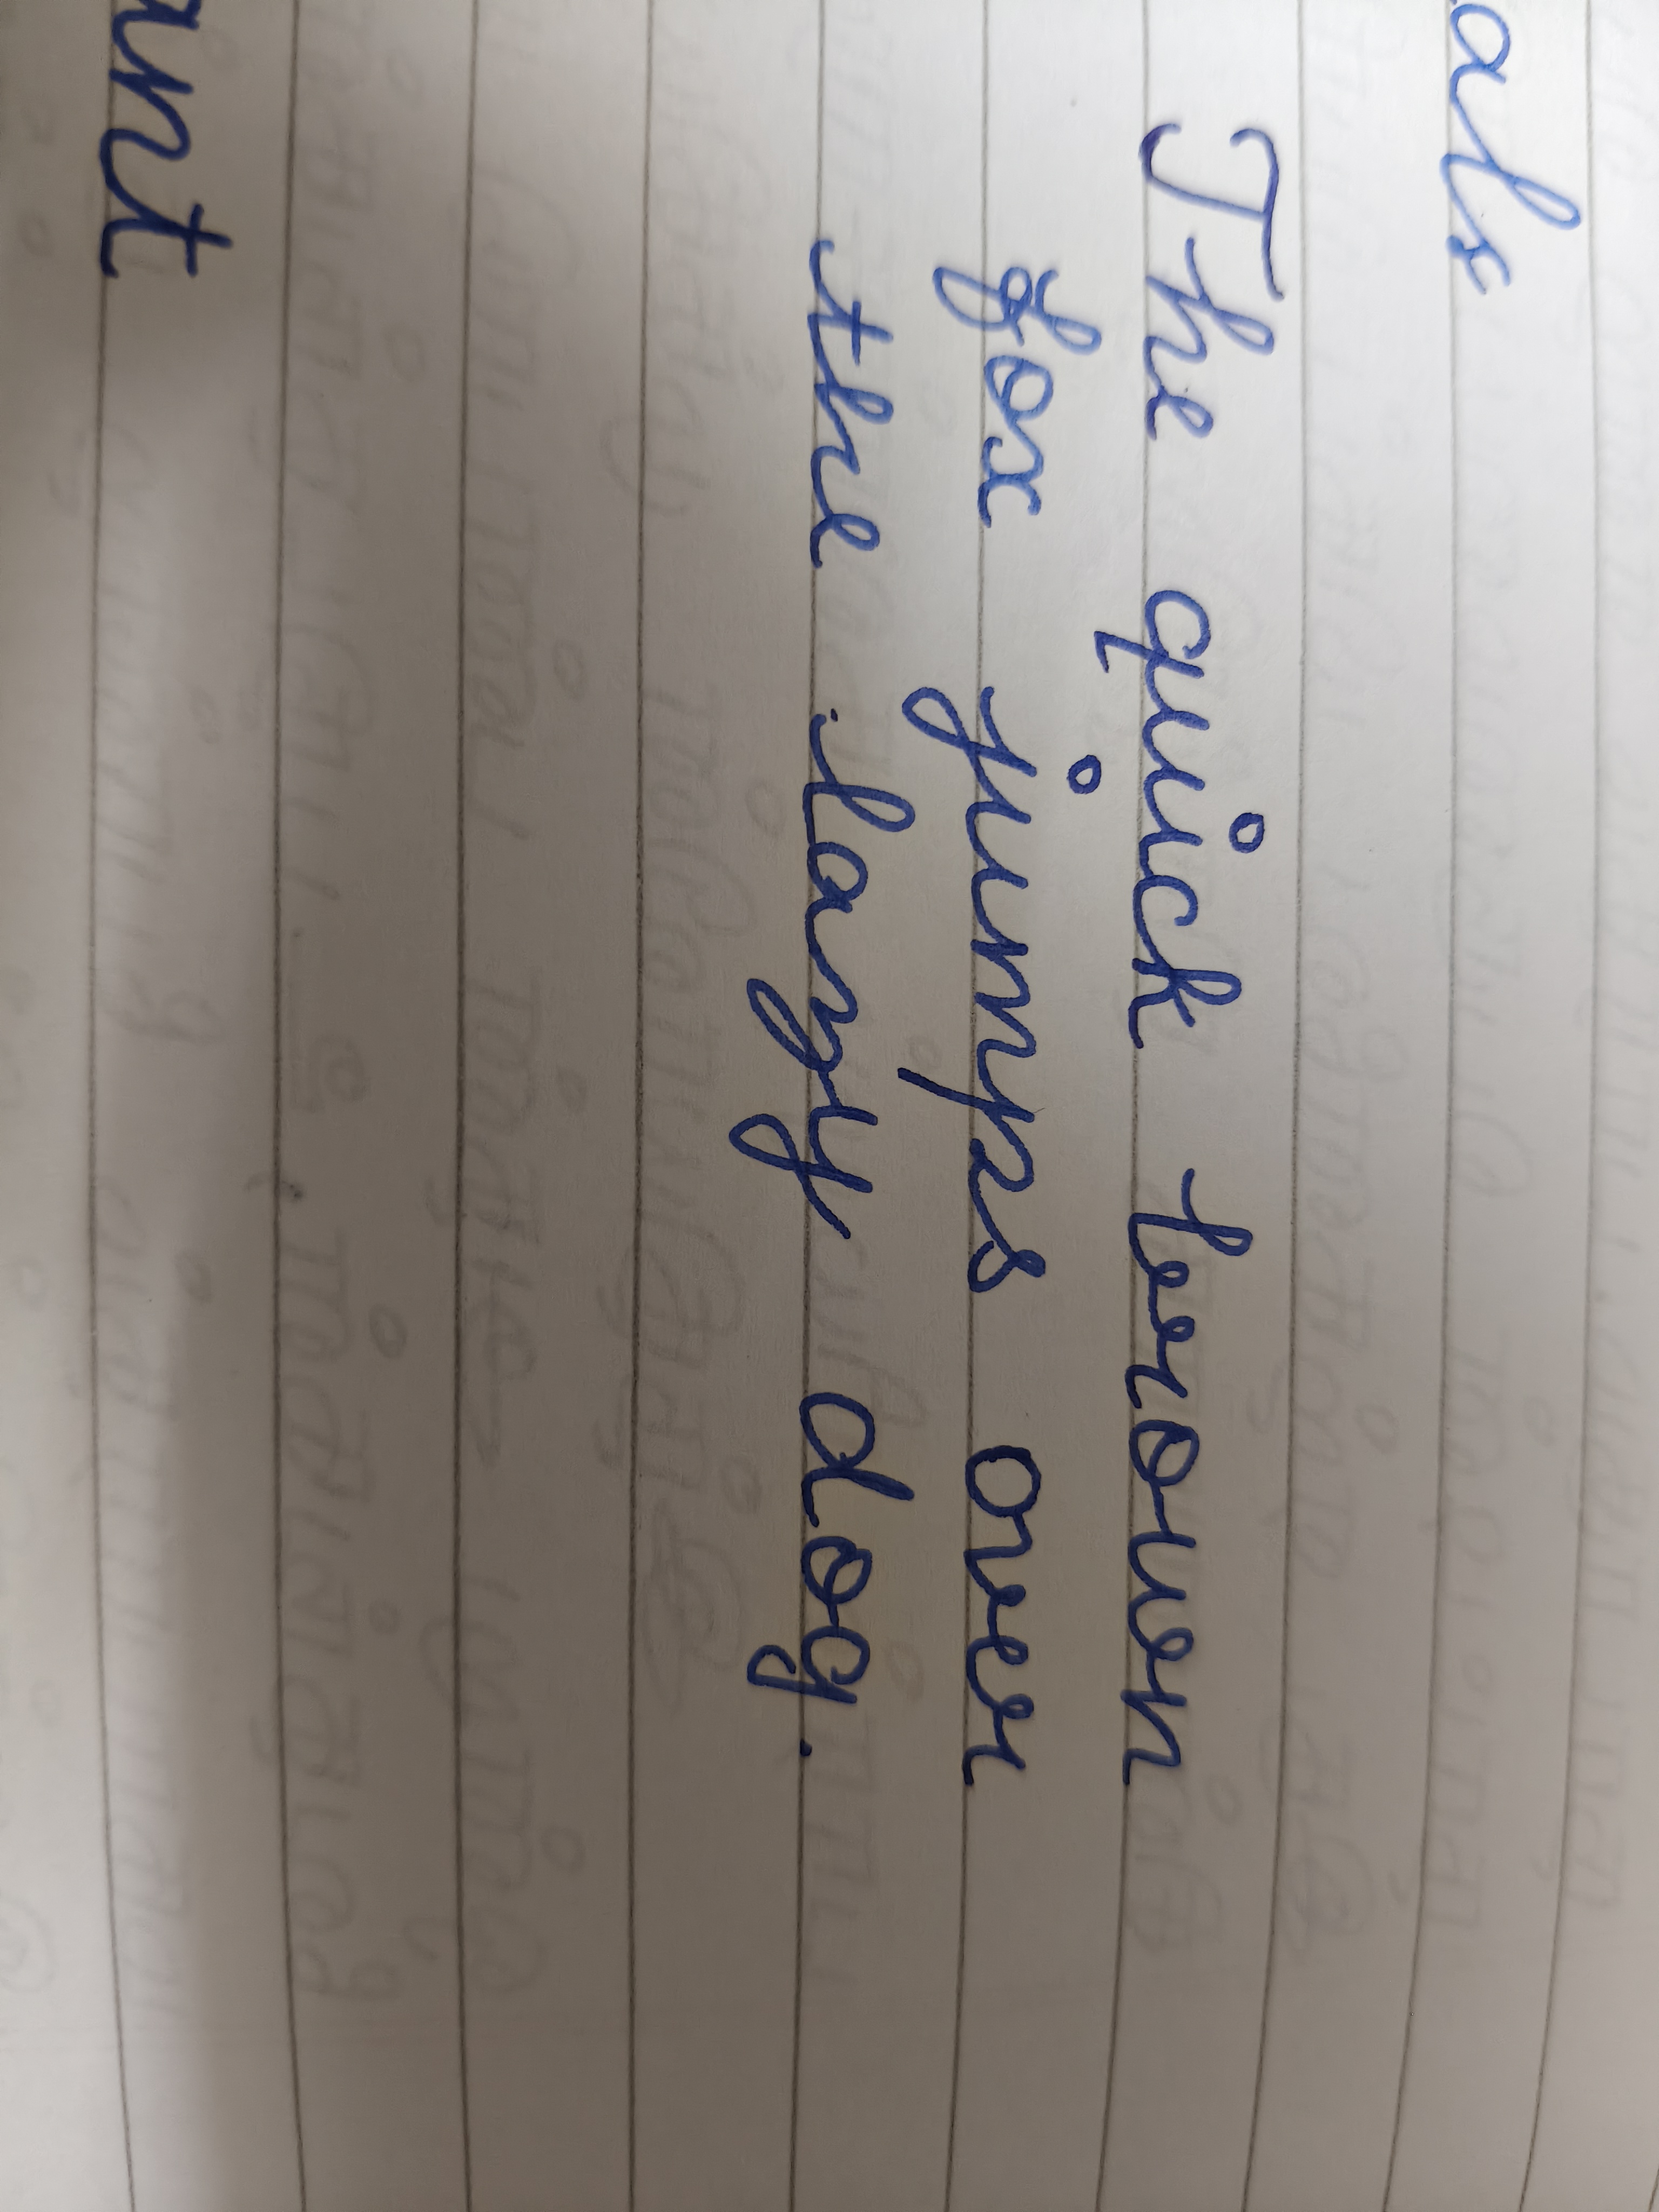 als
The quick brown
fox jumps over
the lazy dog.
ant